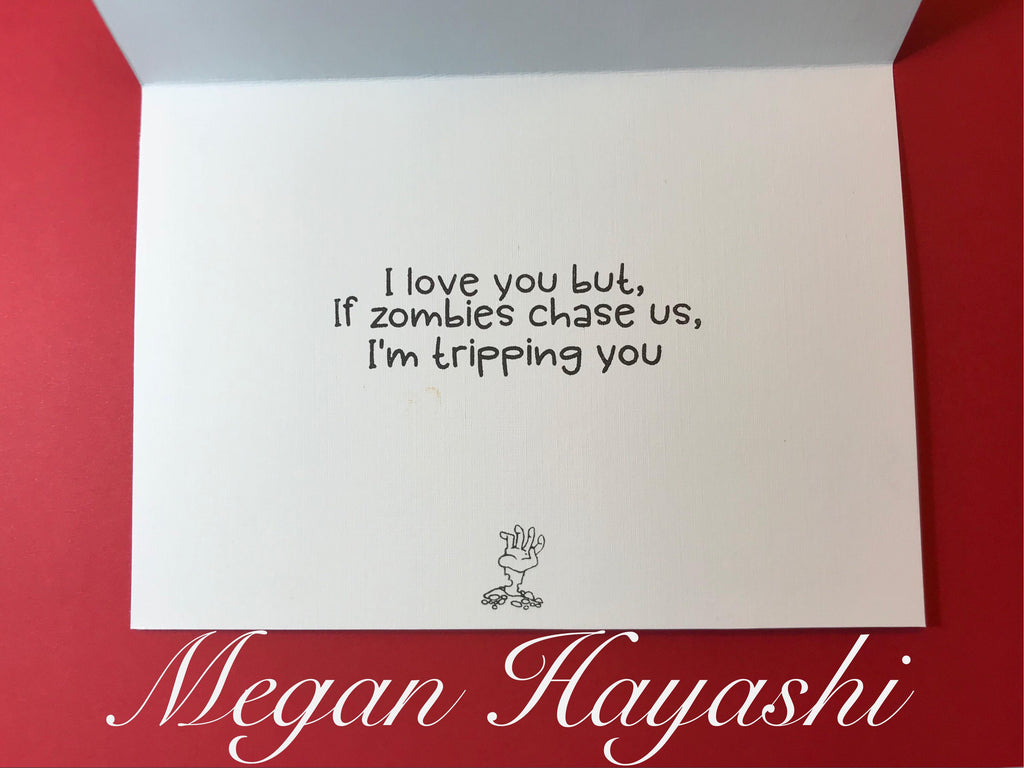 I love you but,
If zombies chase us,
I'm tripping you
Megan Hayashi